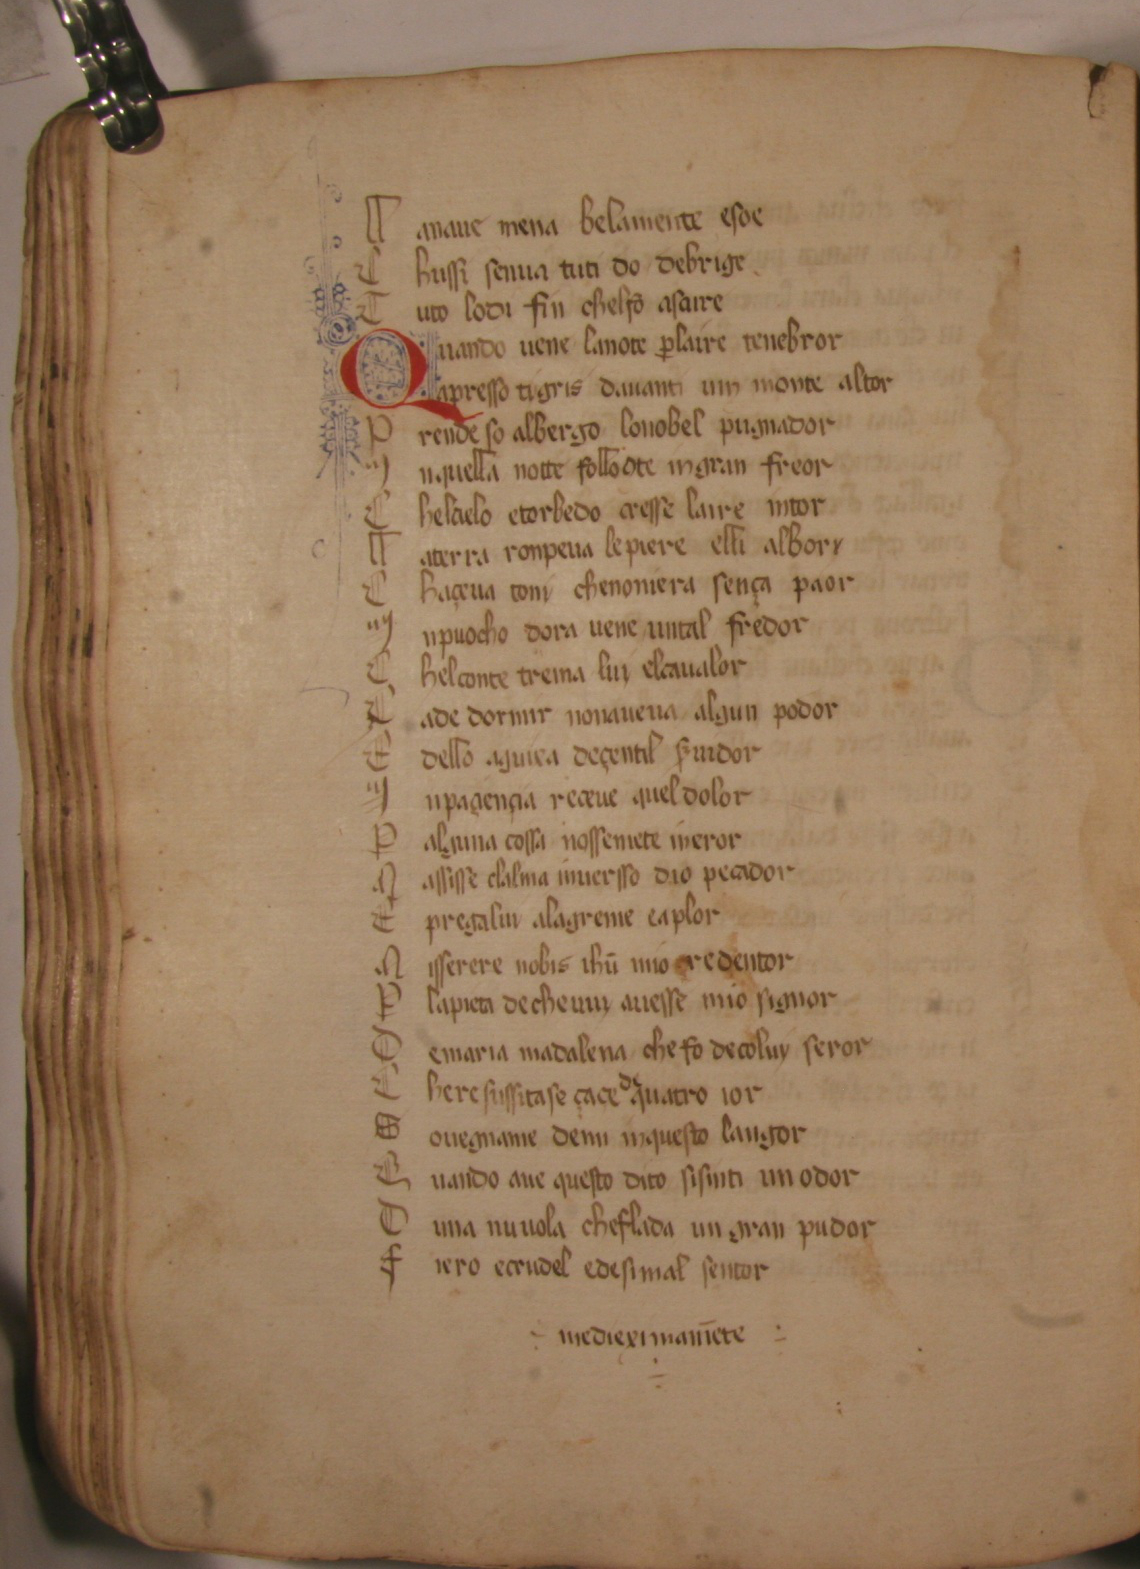 L anaue mena belamente esde
C hussi senua tuti do debrige
T uto lodi fin chelfo asaire
Quando uene lanote plaire tenebror
apresso tigris dauanti um monte altor
P rende so albergo lonobel pugnador
I nquella notte follo dte ingran freor
C helcielo etorbedo cresse laire intor
L aterra ronpeua lepiere elli albory
C haçeua tony chenoniera sença paor
I npuocho dora uene untal fredor
C helconte trema luy elcaualor
L ade dormir nonaueua algun podor
E dello aguiea deçentil seruidor
I npaçençia receue quel dolor
P alguna cossa nossemete ineror
M assisse clalma inuersso dio pecador
E pregaluy alagreme eaplor
M isserere nobis ihū mio redentor
P lapieta decheuuy auesse mio signor
D emaria madalena che fo decoluy seror
C heresussitase çace de quatro ior
S ouegname demi inquesto langor
Q uando aue questo dito sisinti un odor
D una nuuola cheflada un gran pudor
F iero ecrudel edesimal sentor
medieximamēte